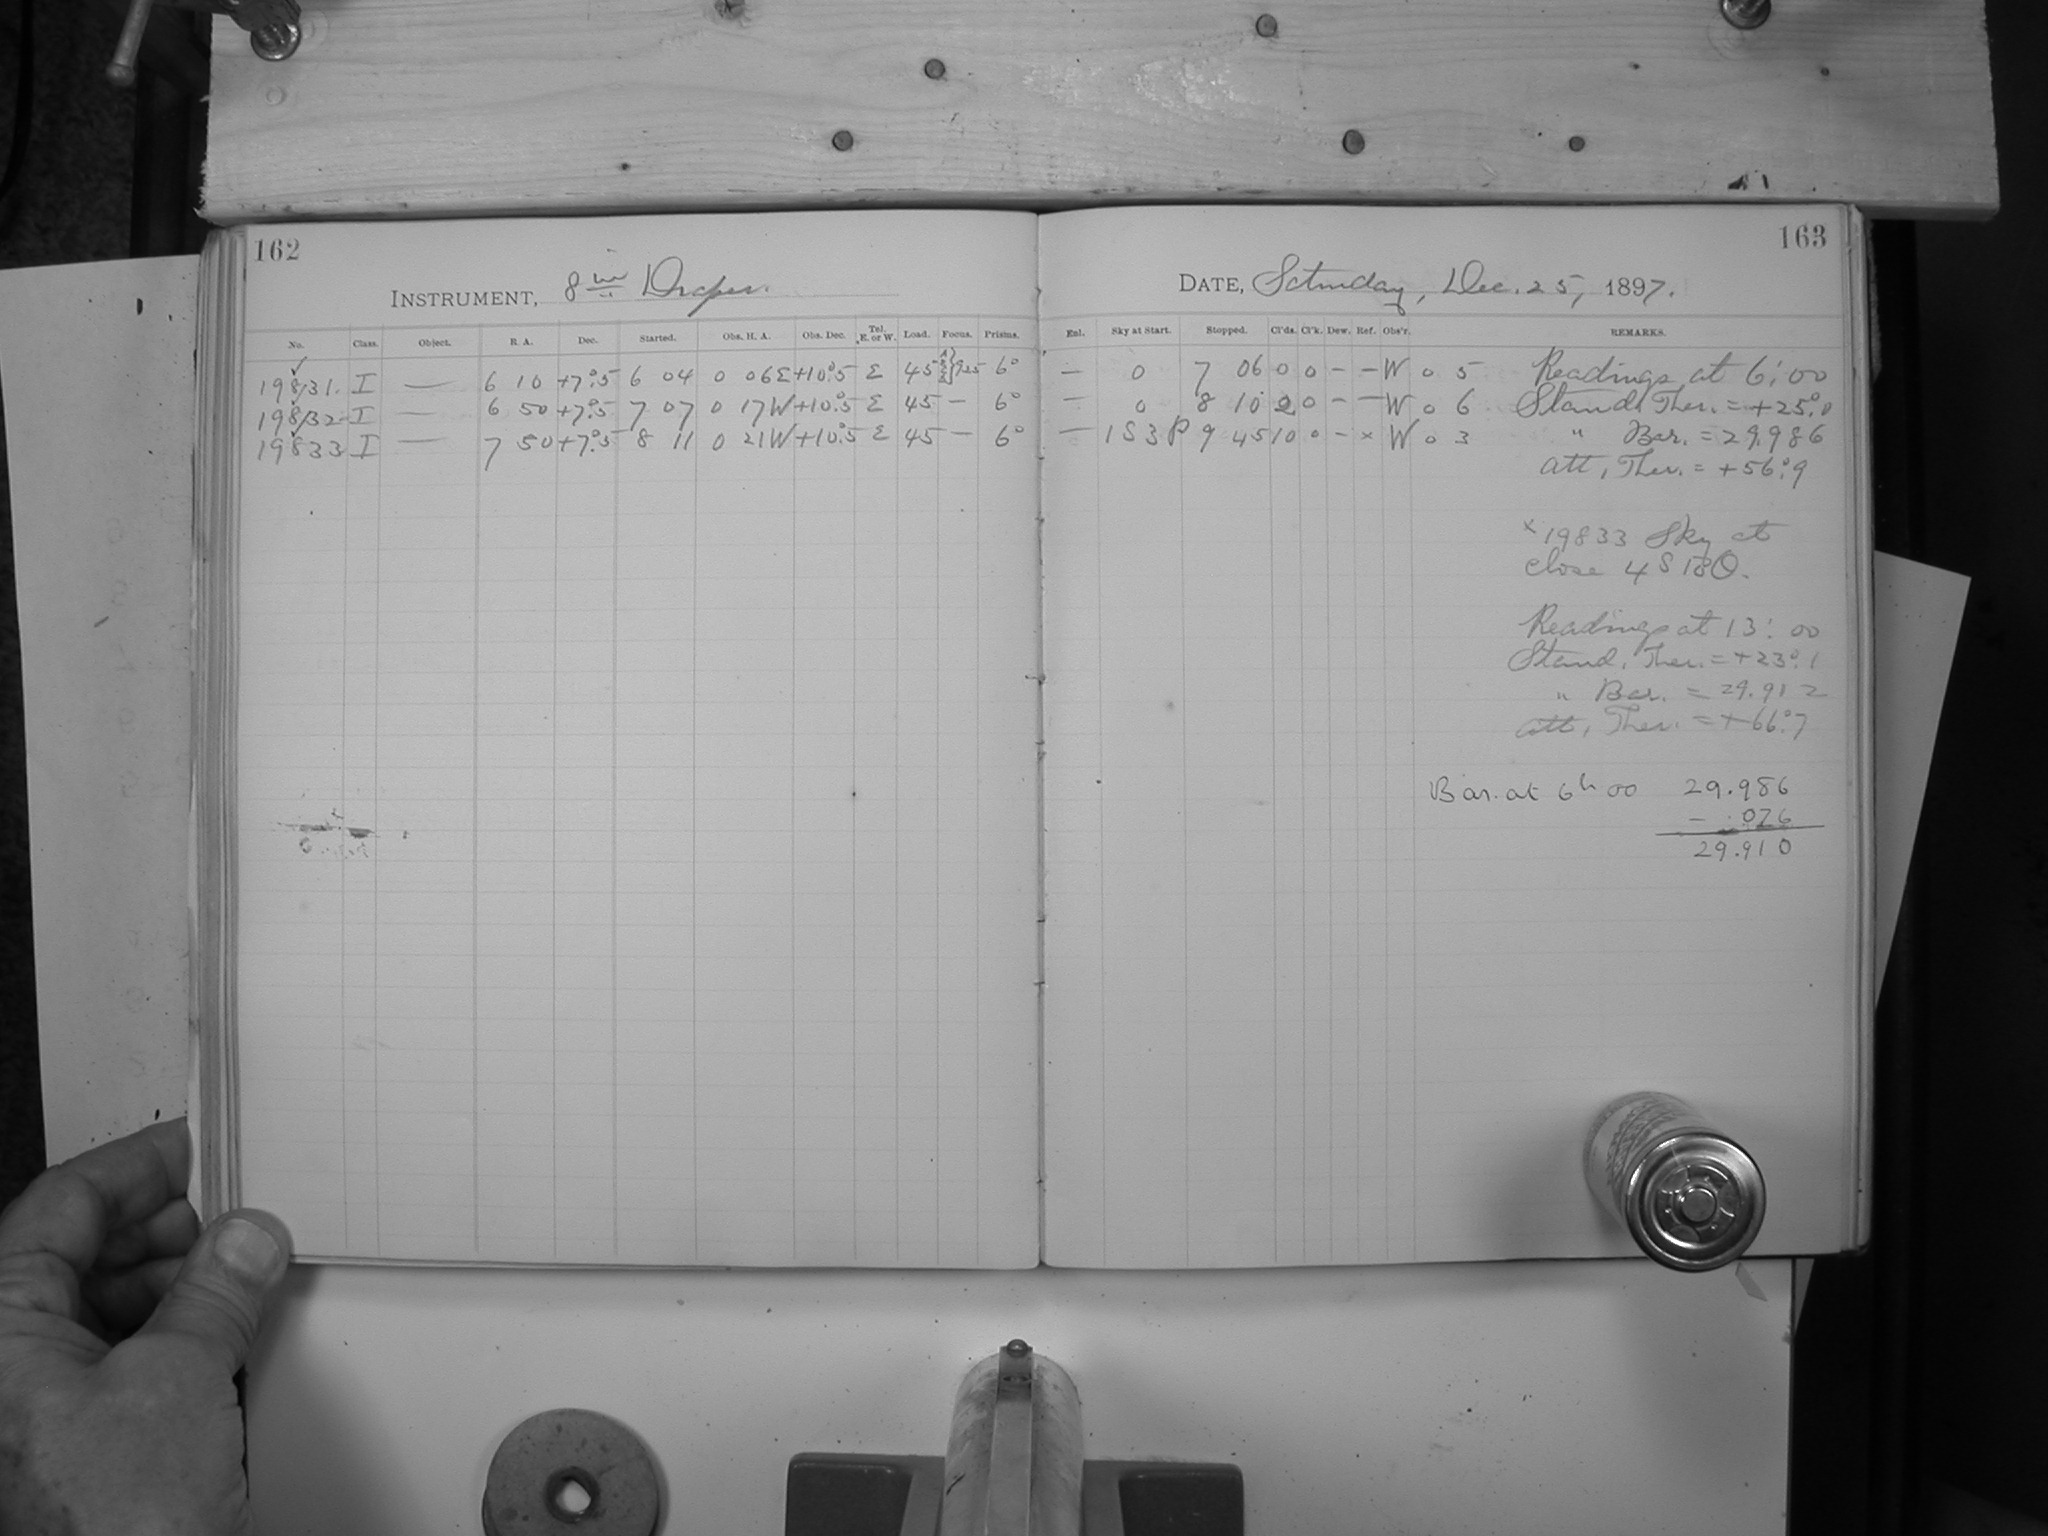 162
INSTRUMENT, 8 in Draper.
No. Class. Object. R. A. Dec. Started. Obs. H. A. Obs. Dec. Tel. E. or W. Load. Focus. Prisms.
19831. I — 6 10 +7°.5 6 04 0 06 E +10°.5 E 45 925 6°
19832 I — 6 50 +7°.5 7 07 0 17 W +10°.5 E 45 — 6°
19833 I — 7 50 +7°.5 8 11 0 21 W +10°.5 E 45 — 6°
163
DATE, Saturday, Dec. 25, 1897.
Enl. Sky at Start. Stopped. Cl'ds. Cl'k. Dew. Ref. Obs'r. REMARKS.
— 0 7 06 0 0 – – W 0 5 Readings at 6:00
— 0 8 10 2 0 – – W 0 6 Stand. Ther. = +25°.0
— 1 S 3 P 9 45 10 0 – x W 0 3 " Bar. = 29.986
Att. Ther. = +56°.9
x 19833 Sky at
close 4 S 18 O.
Readings at 13:00
Stand. Ther. = +23°.1
" Bar. = 29.912
Att. Ther. = +66°.7
Bar. at 6h 00 29.986
- .076
29.910